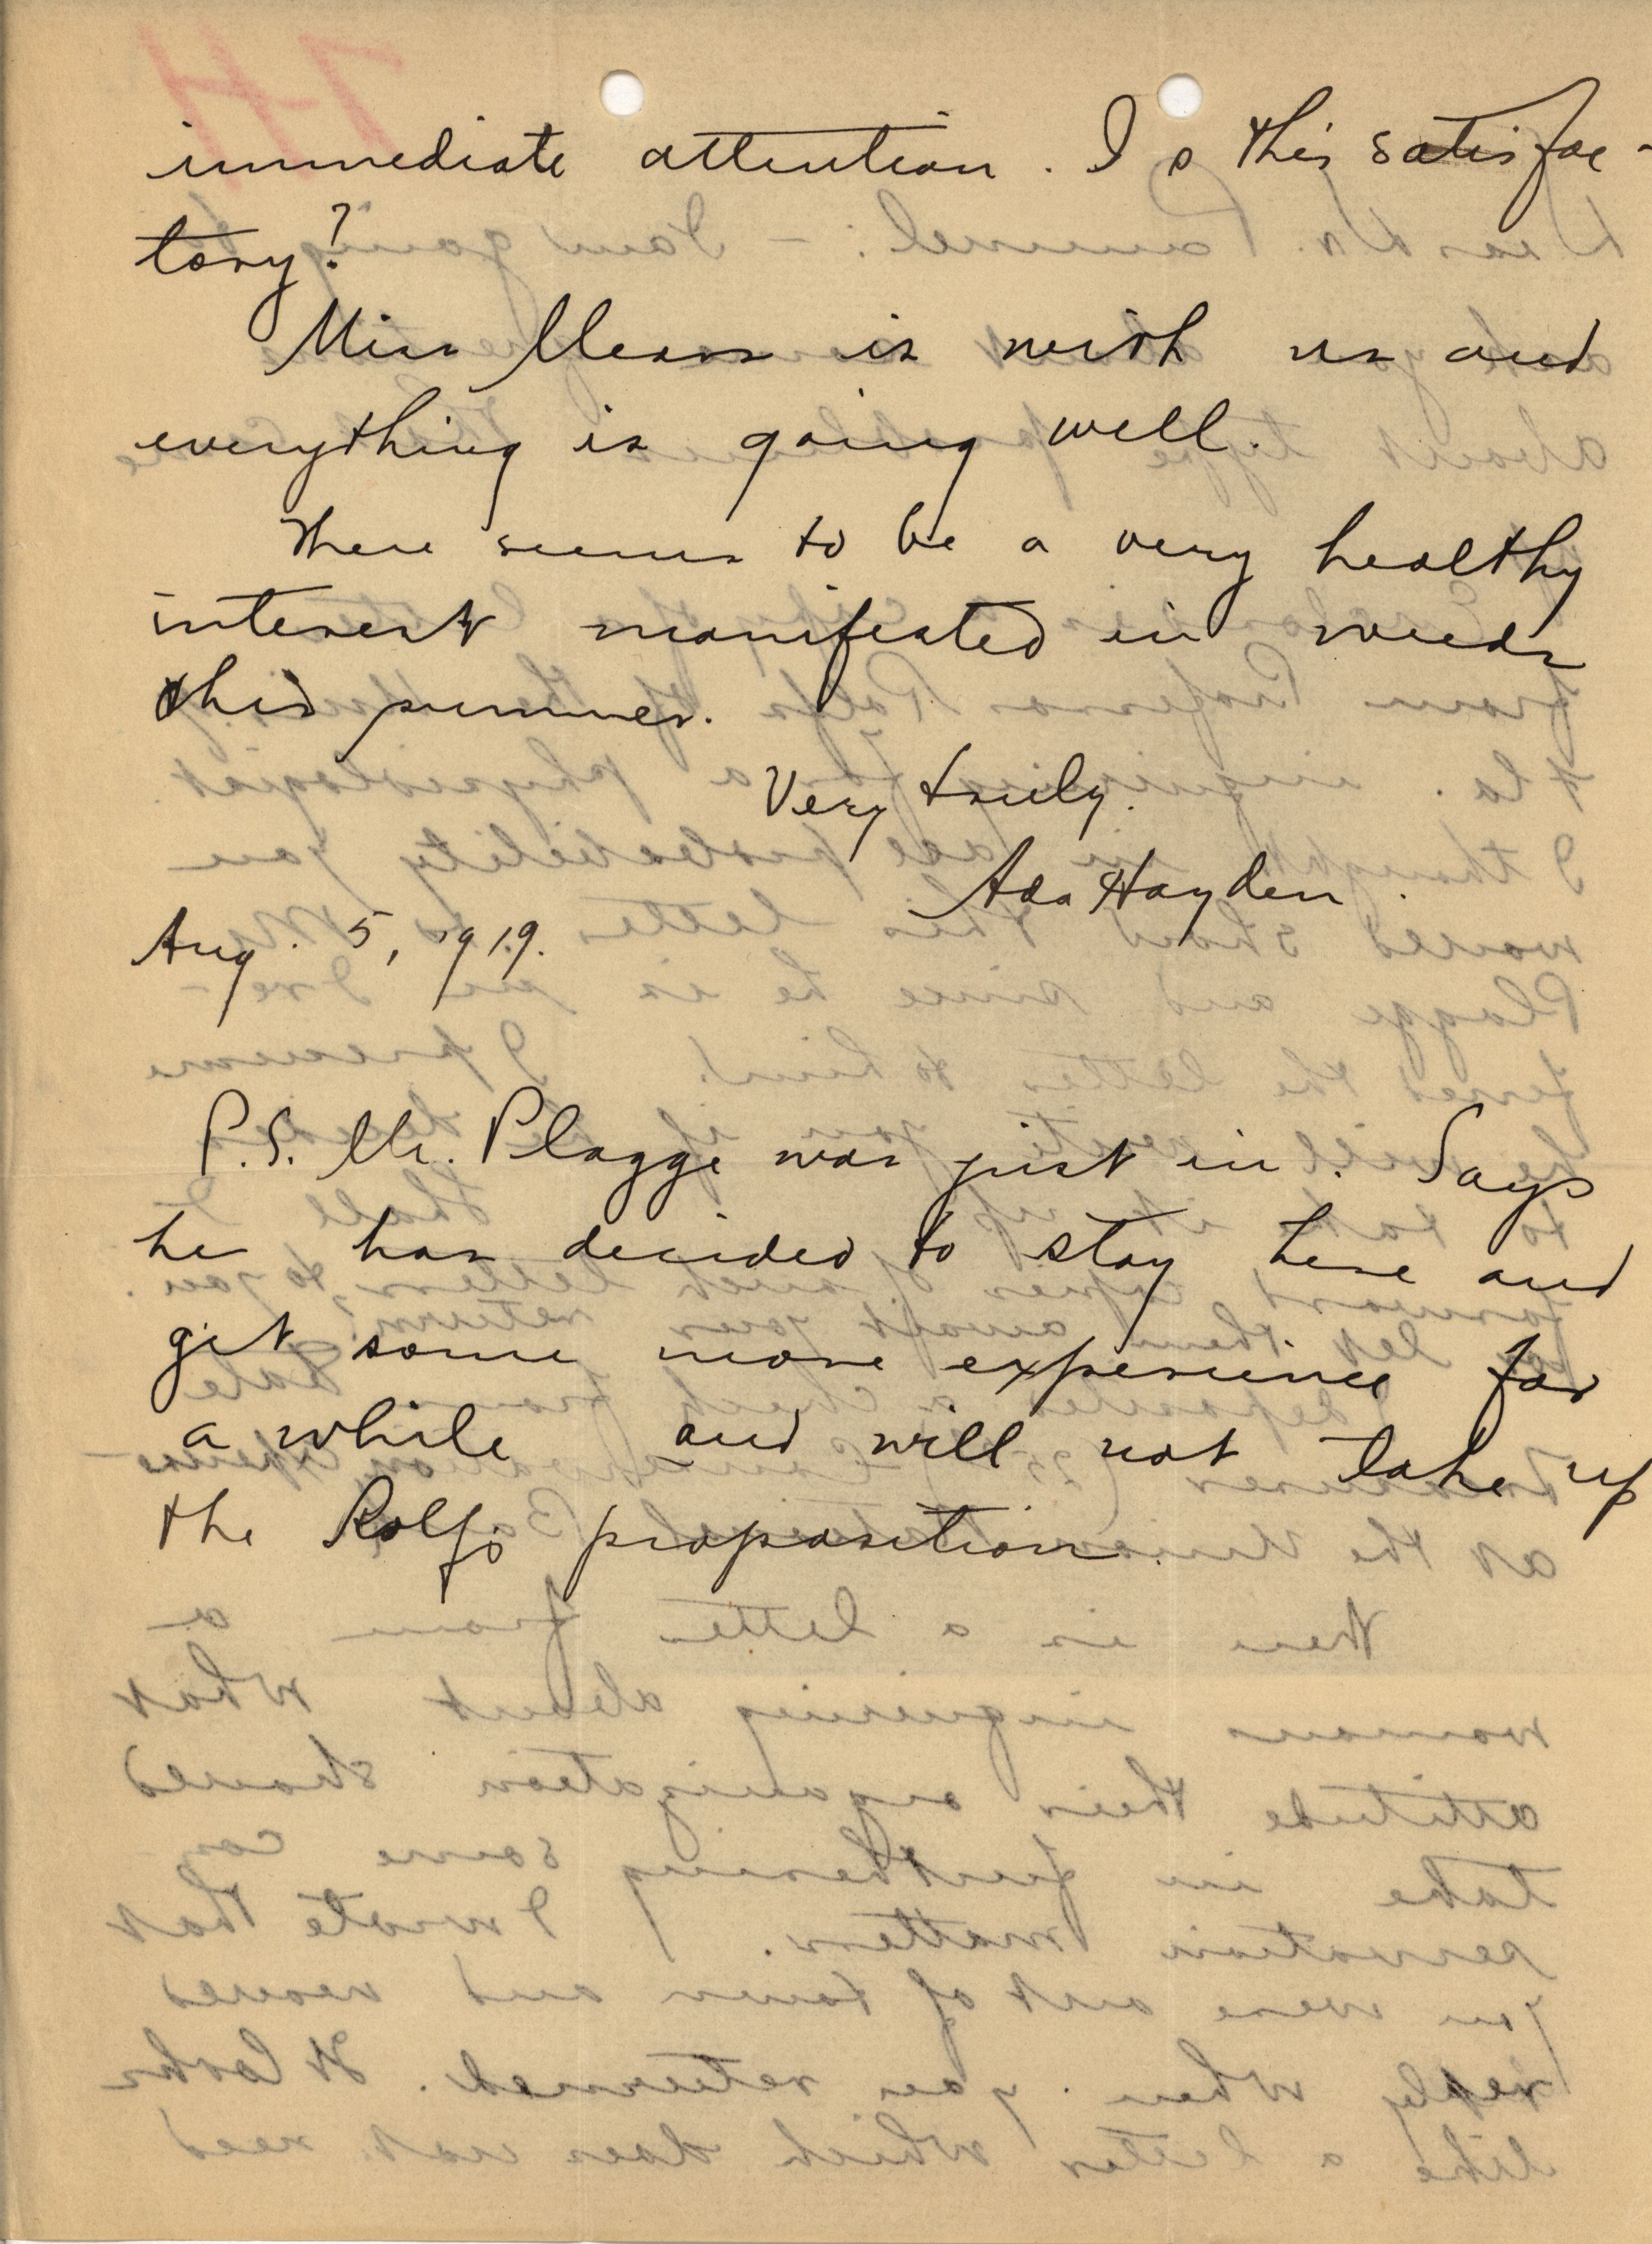 immediate attention. Is this satisfac-
tory?
Miss Means is with us and
everything is going well.
There seems to be a very healthy
interest manifested in weeds
this summer.
Very truly.
Ada Hayden.
Aug. 5, 1919.
P.S. Mr. Plagge was just in. Says
he has decided to stay here and
get some more experience for
a while and will not take up
the Rolfs proposition.